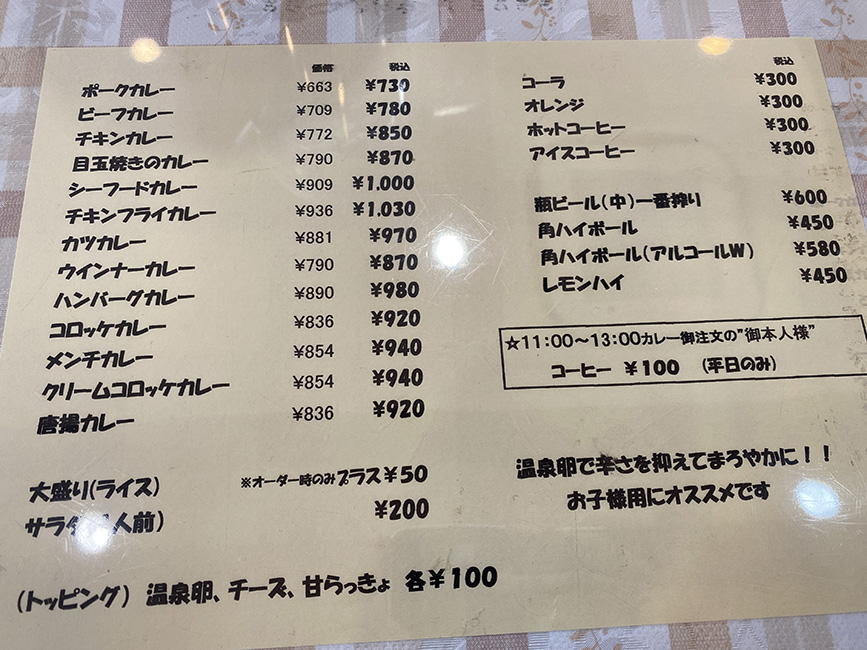 価格 税込
ポークカレー ¥663 ¥730
ビーフカレー ¥709 ¥780
チキンカレー ¥772 ¥850
目玉焼きのカレー ¥790 ¥870
シーフードカレー ¥909 ¥1.000
チキンフライカレー ¥936 ¥1.030
カツカレー ¥881 ¥970
ウインナーカレー ¥790 ¥870
ハンバーグカレー ¥890 ¥980
コロッケカレー ¥836 ¥920
メンチカレー ¥854 ¥940
クリームコロッケカレー ¥854 ¥940
唐揚カレー ¥836 ¥920
大盛り(ライス) ※オーダー時のみプラス¥50
サラダ 人前) ¥200
(トッピング) 温泉卵、チーズ、甘らっきょ 各¥100
税込
コーラ ¥300
オレンジ ¥300
ホットコーヒー ¥300
アイスコーヒー ¥300
瓶ビール(中)一番搾り ¥600
角ハイボール ¥450
角ハイボール(アルコールW) ¥580
レモンハイ ¥450
☆11:00~13:00カレー御注文の"御本人様"
コーヒー ¥100 (平日のみ)
温泉卵で辛さを抑えてまろやかに!!
お子様用にオススメです